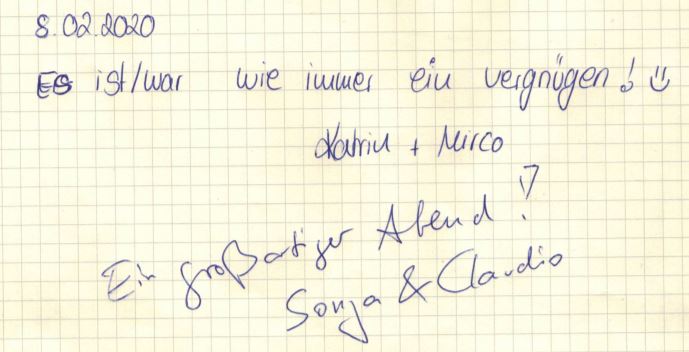 8.02.2020
Es ist/war wie immer ein vergnügen! ü
Katrin + Mirco
Ein großartiger Abend!
Sonja & Claudio